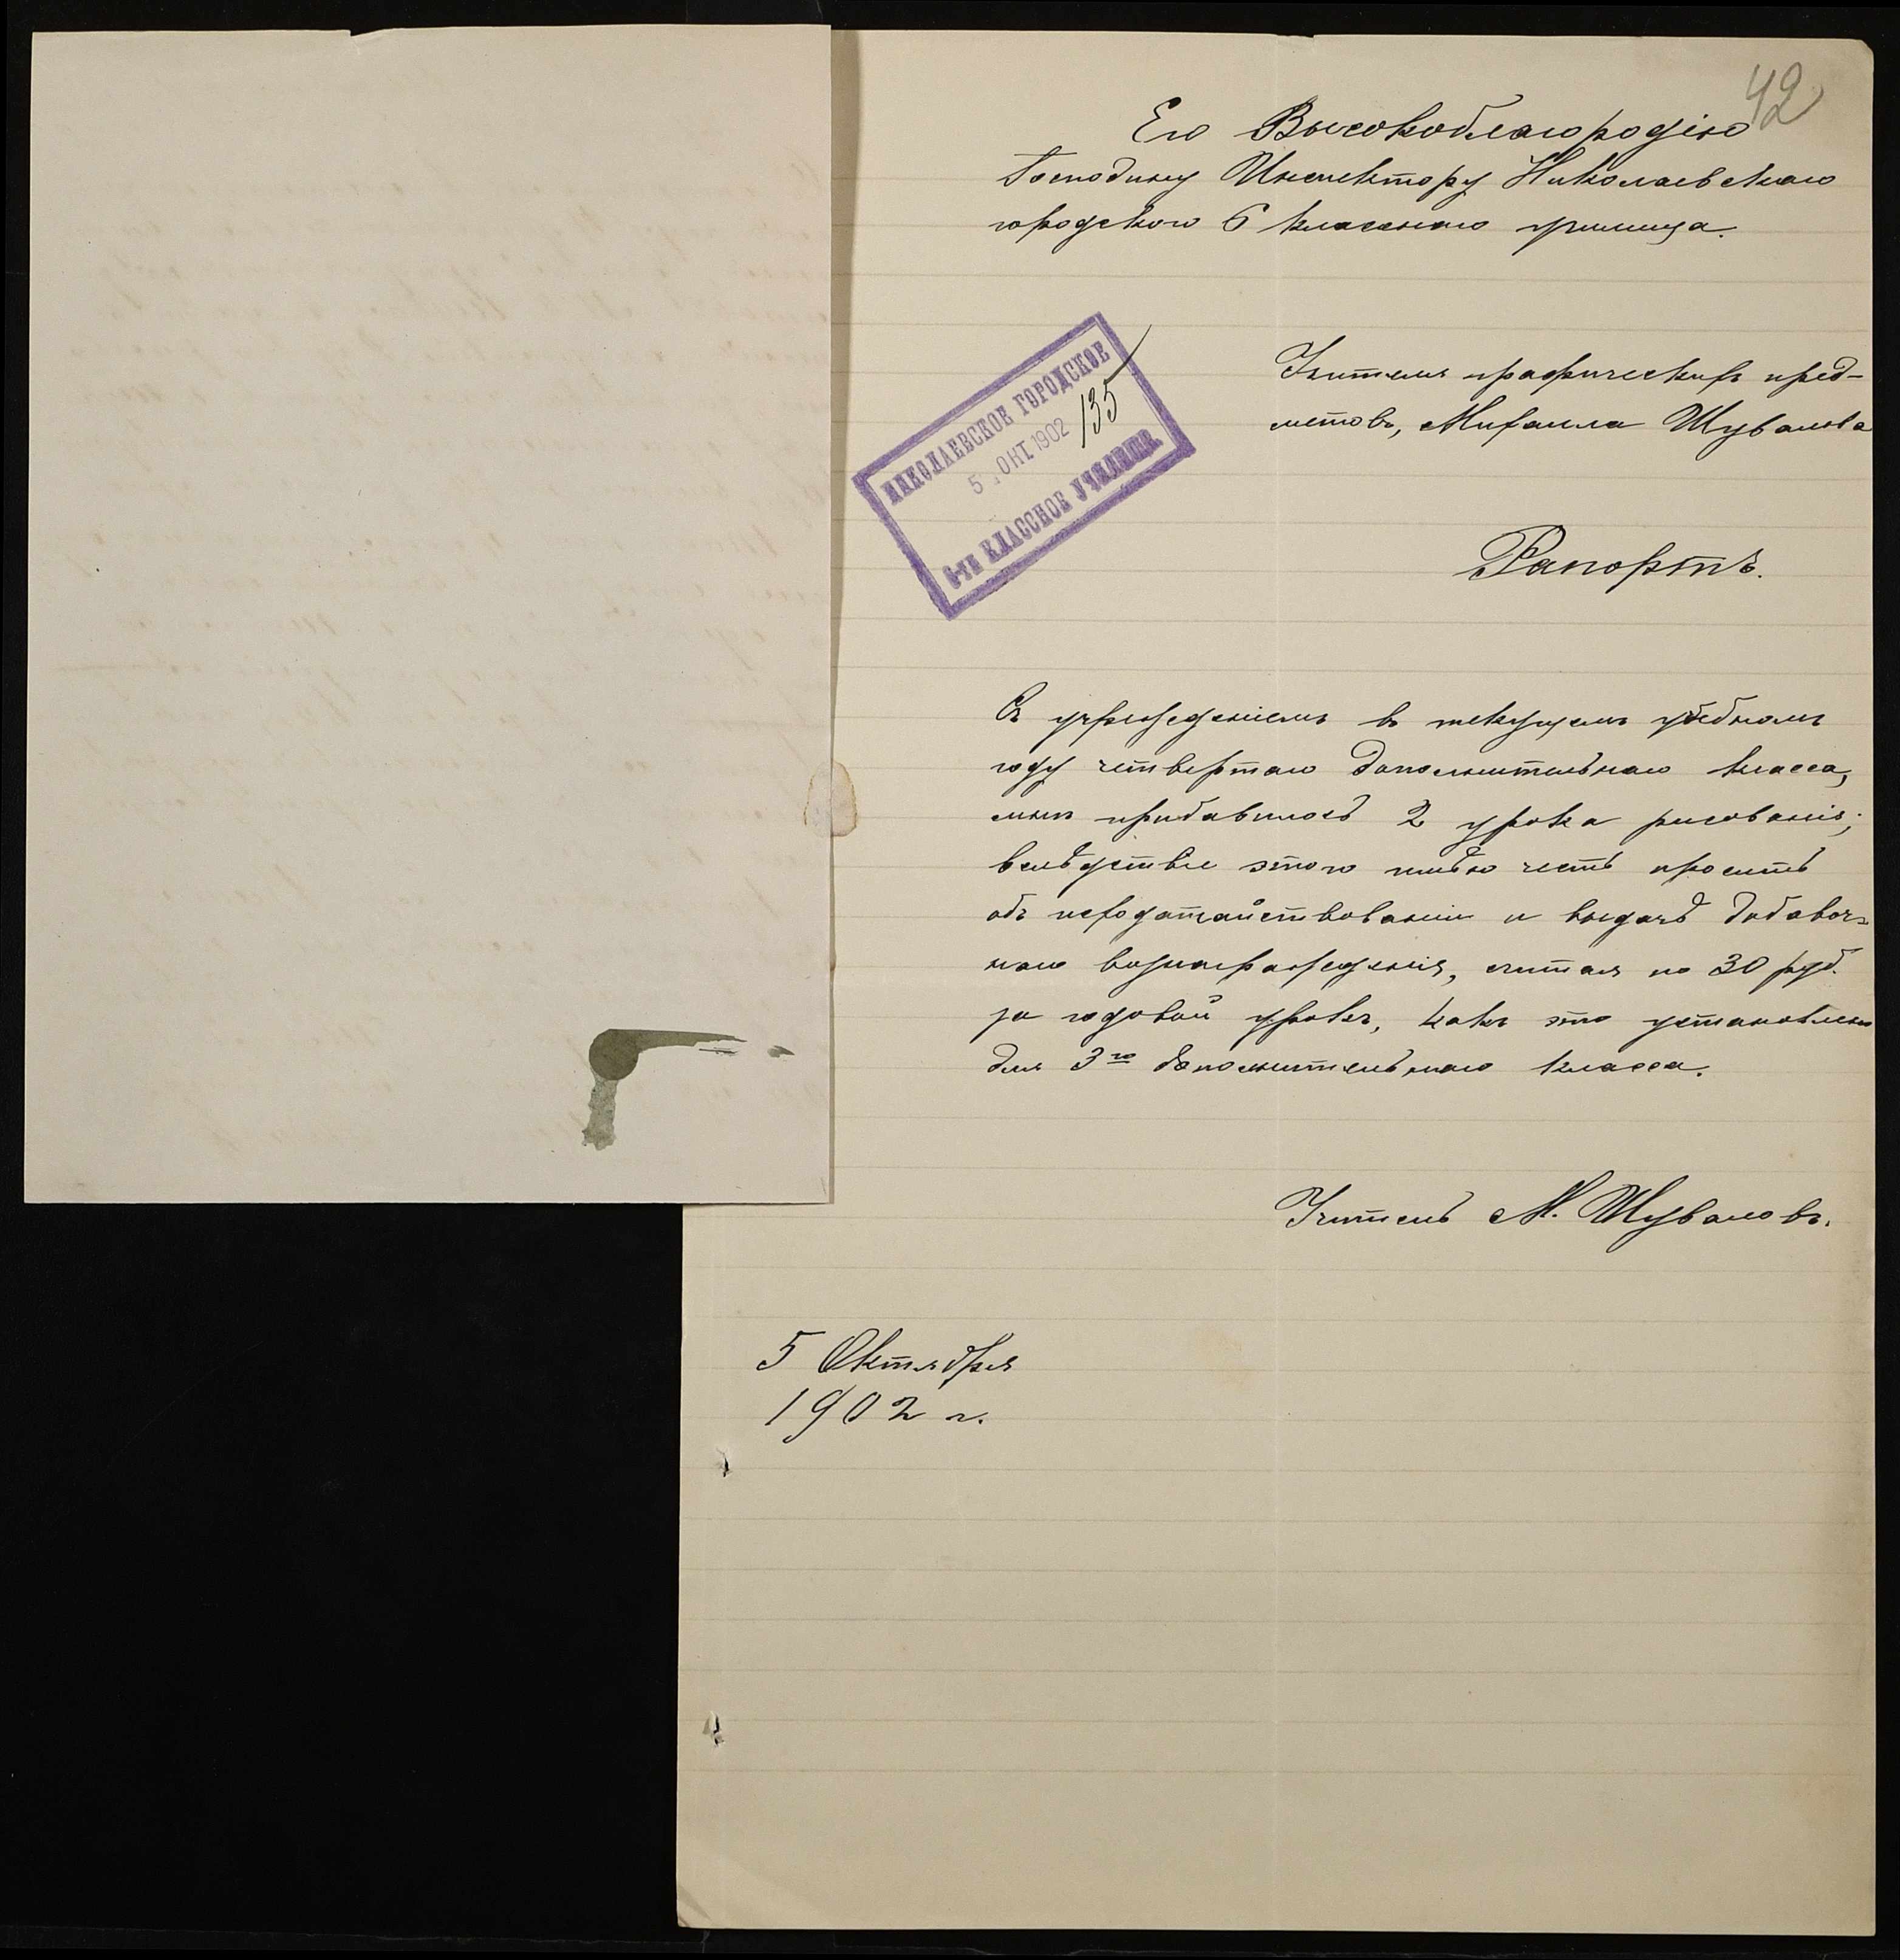 42
Его Высокоблагородію
Господину Инспектору Николаевскаго
городского 6 класснаго училища.
НИКОЛАЕВСКОЕ ГОРОДСКОЕ
5 ОКТ 1902
135
6-ТИ КЛАССНОЕ УЧИЛИЩЕ
Учителя графическихъ пред-
метовъ, Михаила Шувалова
Рапортъ.
Съ учрежденіемъ въ текущемъ учебномъ
году четвертаго дополнительнаго класса,
мнѣ прибавилось 2 урока рисованія;
вслѣдствіе этого имѣю честь просить
объ исходатайствованіи и выдачѣ добавоч-
наго вознагражденія, считая по 30 руб.
за годовой урокъ, какъ это установлено
для 3го дополнительнаго класса.
Учитель М. Шуваловъ.
5 Октября
1902 г.